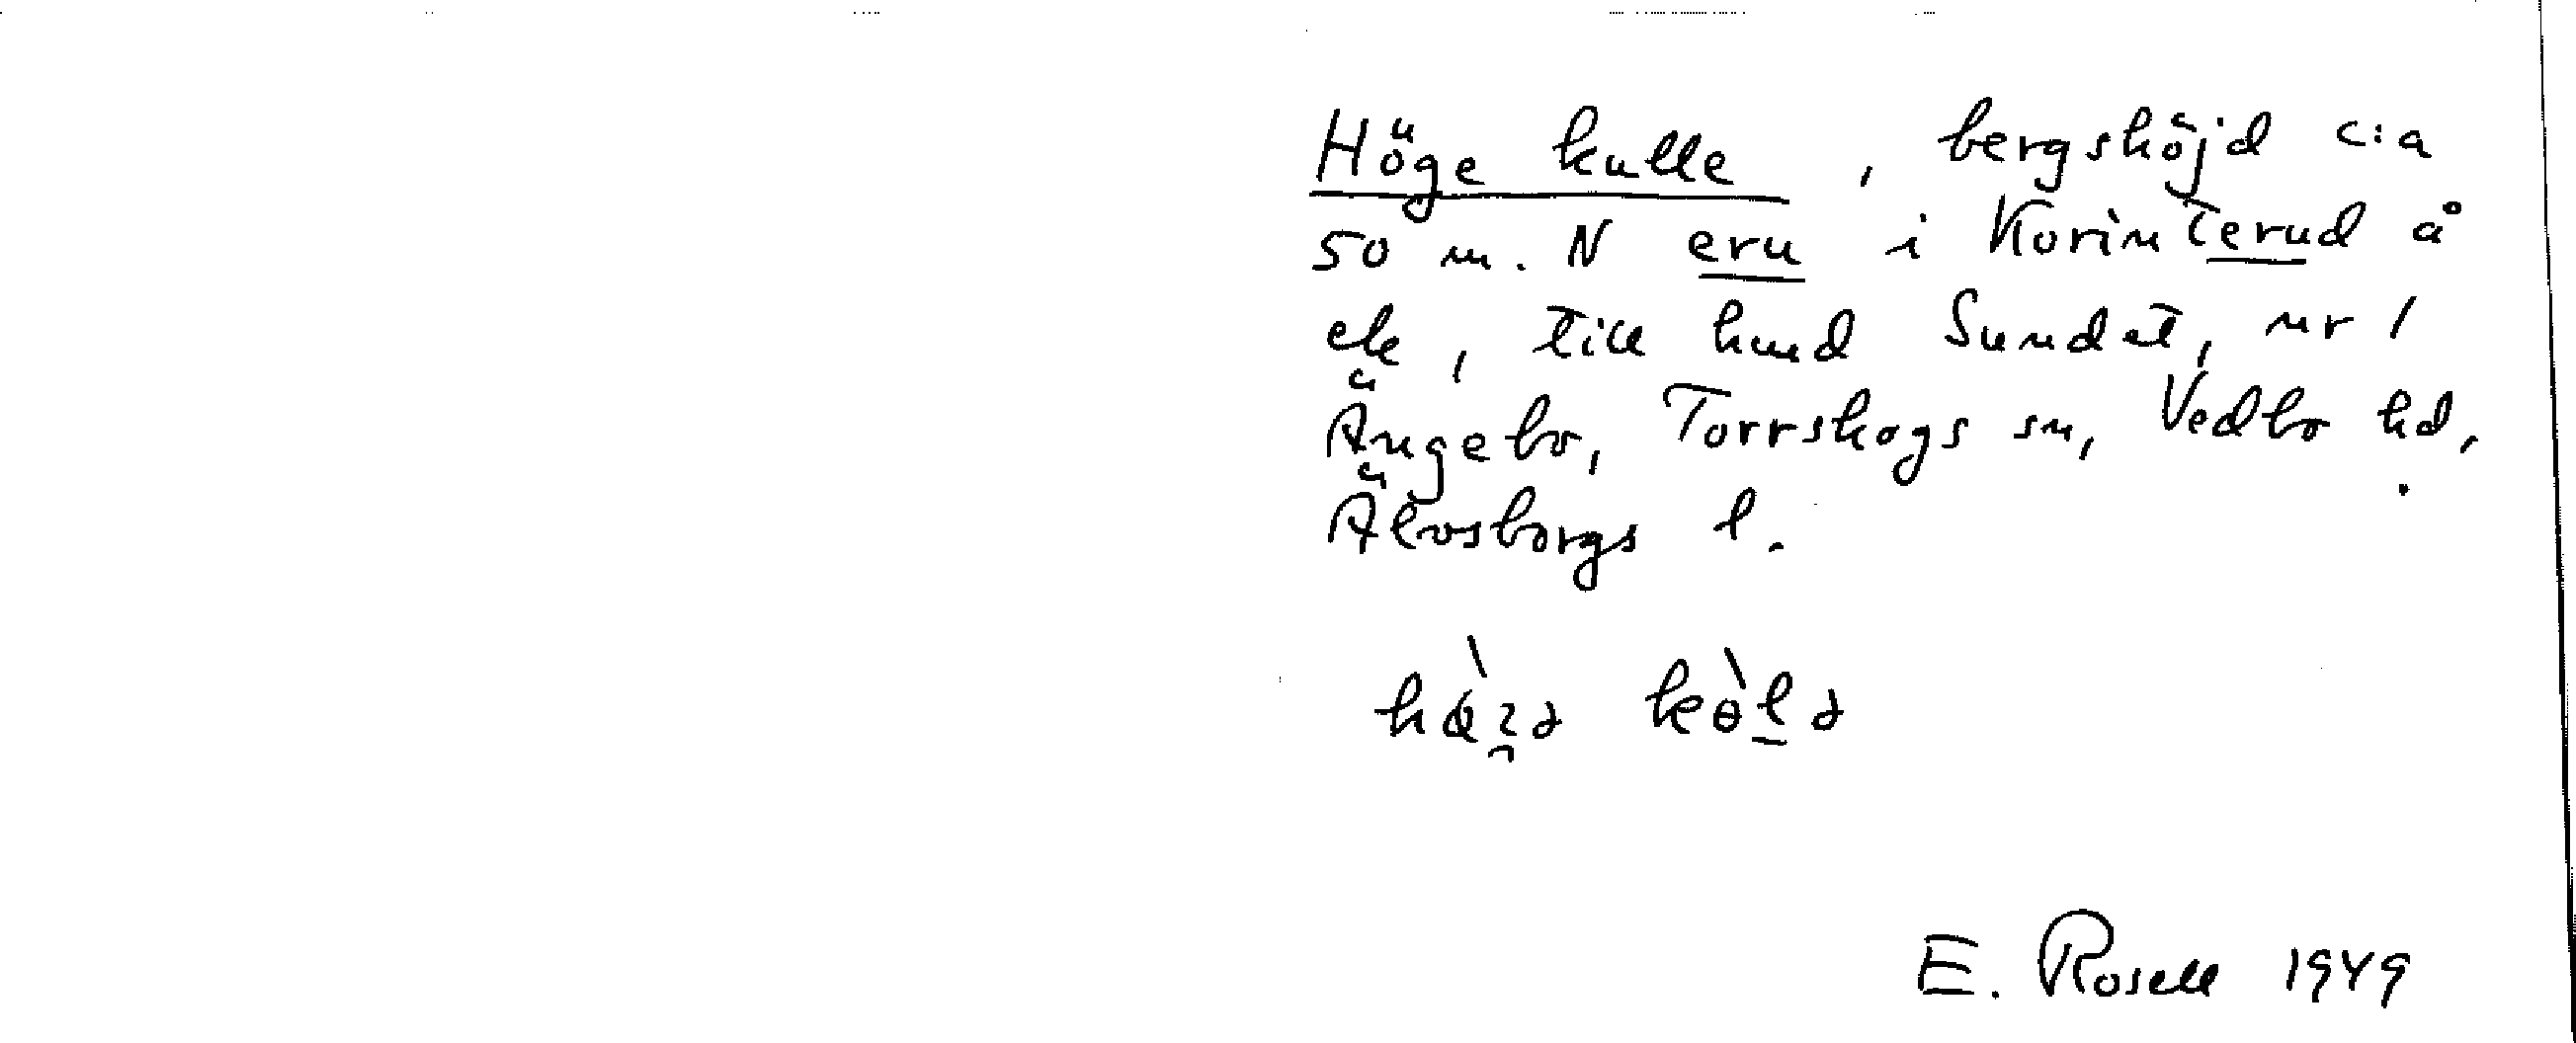 Höge kulle, bergshöjd c:a
50 m. N eru i Korinterud å
ek, till hmd Sundet, nr 1
Ängebo, Torrskogs sn, Vedbo hd,
Älvsborgs l.
E. Rosell 1949